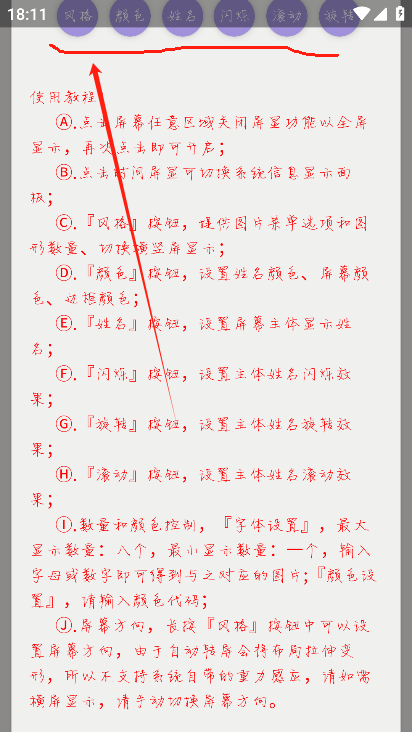 18:11
风格 颜色 姓名 闪烁 滚动 旋转
使用教程
Ⓐ.点击屏幕任意区域关闭屏显功能以全屏
显示，再次点击即可开启；
Ⓑ.点击时间屏显可切换系统信息显示面
板；
Ⓒ.『风格』按钮，提供图片菜单选项和图
形数量、切换横竖屏显示；
Ⓓ.『颜色』按钮，设置姓名颜色、屏幕颜
色、边框颜色；
Ⓔ.『姓名』按钮，设置屏幕主体显示姓
名；
Ⓕ.『闪烁』按钮，设置主体姓名闪烁效
果；
Ⓖ.『旋转』按钮，设置主体姓名旋转效
果；
Ⓗ.『滚动』按钮，设置主体姓名滚动效
果；
Ⓘ.数量和颜色控制，『字体设置』，最大
显示数量：八个，最小显示数量：一个，输入
字母或数字即可得到与之对应的图片；『颜色设
置』，请输入颜色代码；
Ⓙ.屏幕方向，长按『风格』按钮中可以设
置屏幕方向，由于自动转屏会将布局拉伸变
形，所以不支持系统自带的重力感应，请如需
横屏显示，请手动切换屏幕方向。